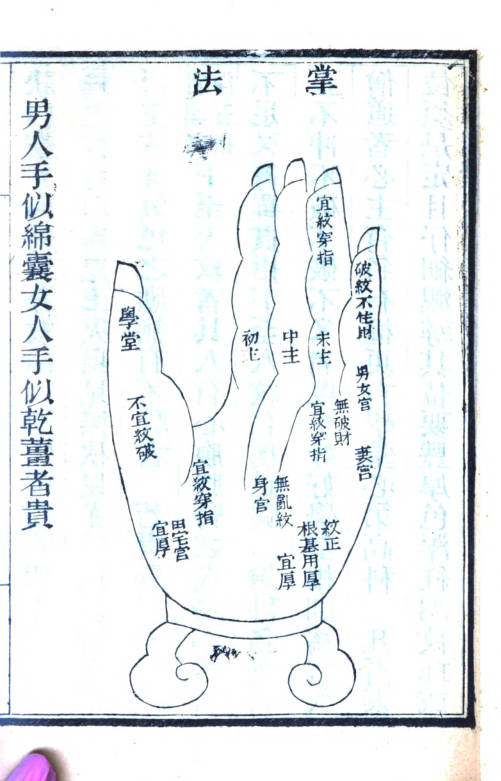 掌法
宜紋穿指
破紋不住財
男女宮
妻宮
末主
中主
初上
無破財
宜紋穿指
學堂
不宜紋破
宜紋穿指
田宅宮
宜厚
無亂紋
身宮
紋正
根基用厚
宜厚
男人手似綿囊女人手似乾薑者貴